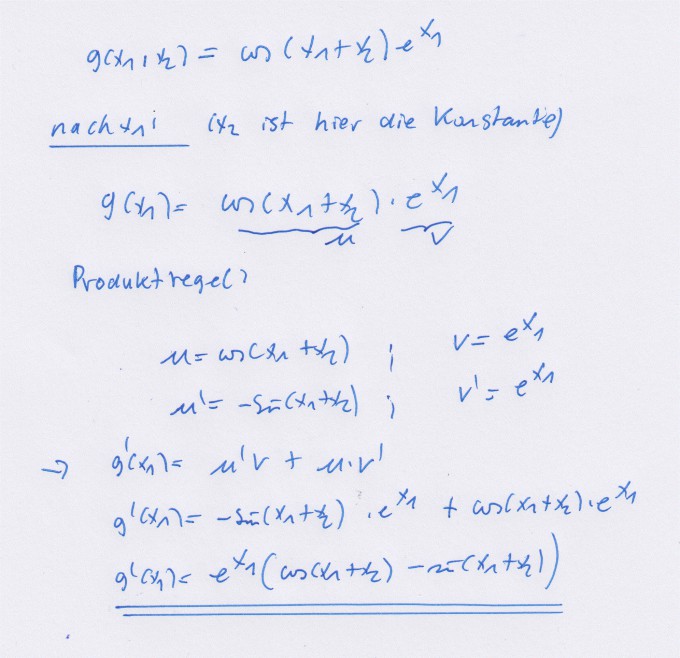 g(x₁,x₂) = cos(x₁+x₂)e^x₁
nach x₁: (x₂ ist hier die Konstante)
g(x₁) = cos(x₁+x₂)·e^x₁
u v
Produktregel:
u = cos(x₁+x₂) ; v = e^x₁
u' = -sin(x₁+x₂) ; v' = e^x₁
→ g'(x₁) = u'v + u·v'
g'(x₁) = -sin(x₁+x₂)·e^x₁ + cos(x₁+x₂)·e^x₁
g'(x₁) = e^x₁(cos(x₁+x₂) - sin(x₁+x₂))